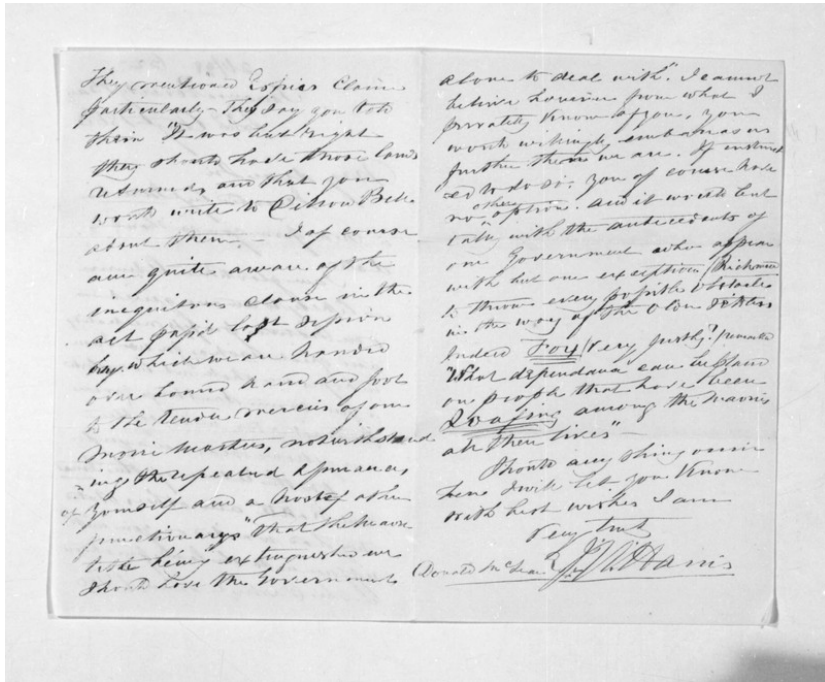 They mentioned Espies Claim
particularly - They say you told
them "It was but right
they should have those lands
returned, and that you
would write to Dillon Bell
about them. - I of course
am quite aware of the
iniquitous clause in the
act pass'd last Session
by which we are handed
over bound hand and foot
to the tender mercies of our
Maori Masters, notwithstand
=ing the repeated assurances,
of yourself and a host of other
functionarys "That the Maori
title being extinguished we
should have the Government
alone to deal with". I cannot
believe however from what I
privately know of you, you
would willingly embarrass us
further than we are. If instruct
=ed to do so, you of course have
no other option. and it would but
tally with the antecedents of
our Government who appear
with but one exception (Richmond
to throw every possible obstacle
in the way of the Olden Settlers
Indeed Fox (very justly?) remarked
"What dependence can be placed
on people that have been
Loafing among the Maoris
all their lives" -
Should any thing occur
here I will let you know
With best wishes I am
Very truly
Donald McLean Esq J. W. Harris